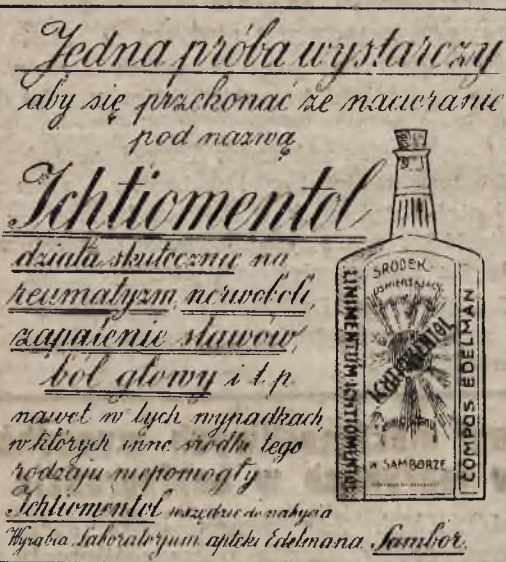 Jedna próba wystarczy
aby się przekonać że nacieranie
pod nazwą
Ichtiomentol
działa skutecznie na
reumatyzm, nerwobóli,
zapalenie stawów,
ból głowy i t. p.
nawet w tych wypadkach,
w których inne środki tego
rodzaju niepomogły
Ichtiomentol wszędzie do nabycia
Wyrabia Laboratoryum apteki Edelmana Sambor.
ŚRODEK
UŚMIERZAJĄCY
ICHTIOMENTOL
W SAMBORZE
LINIMENTUM ICHTIOMENTOL
COMPOS EDELMAN